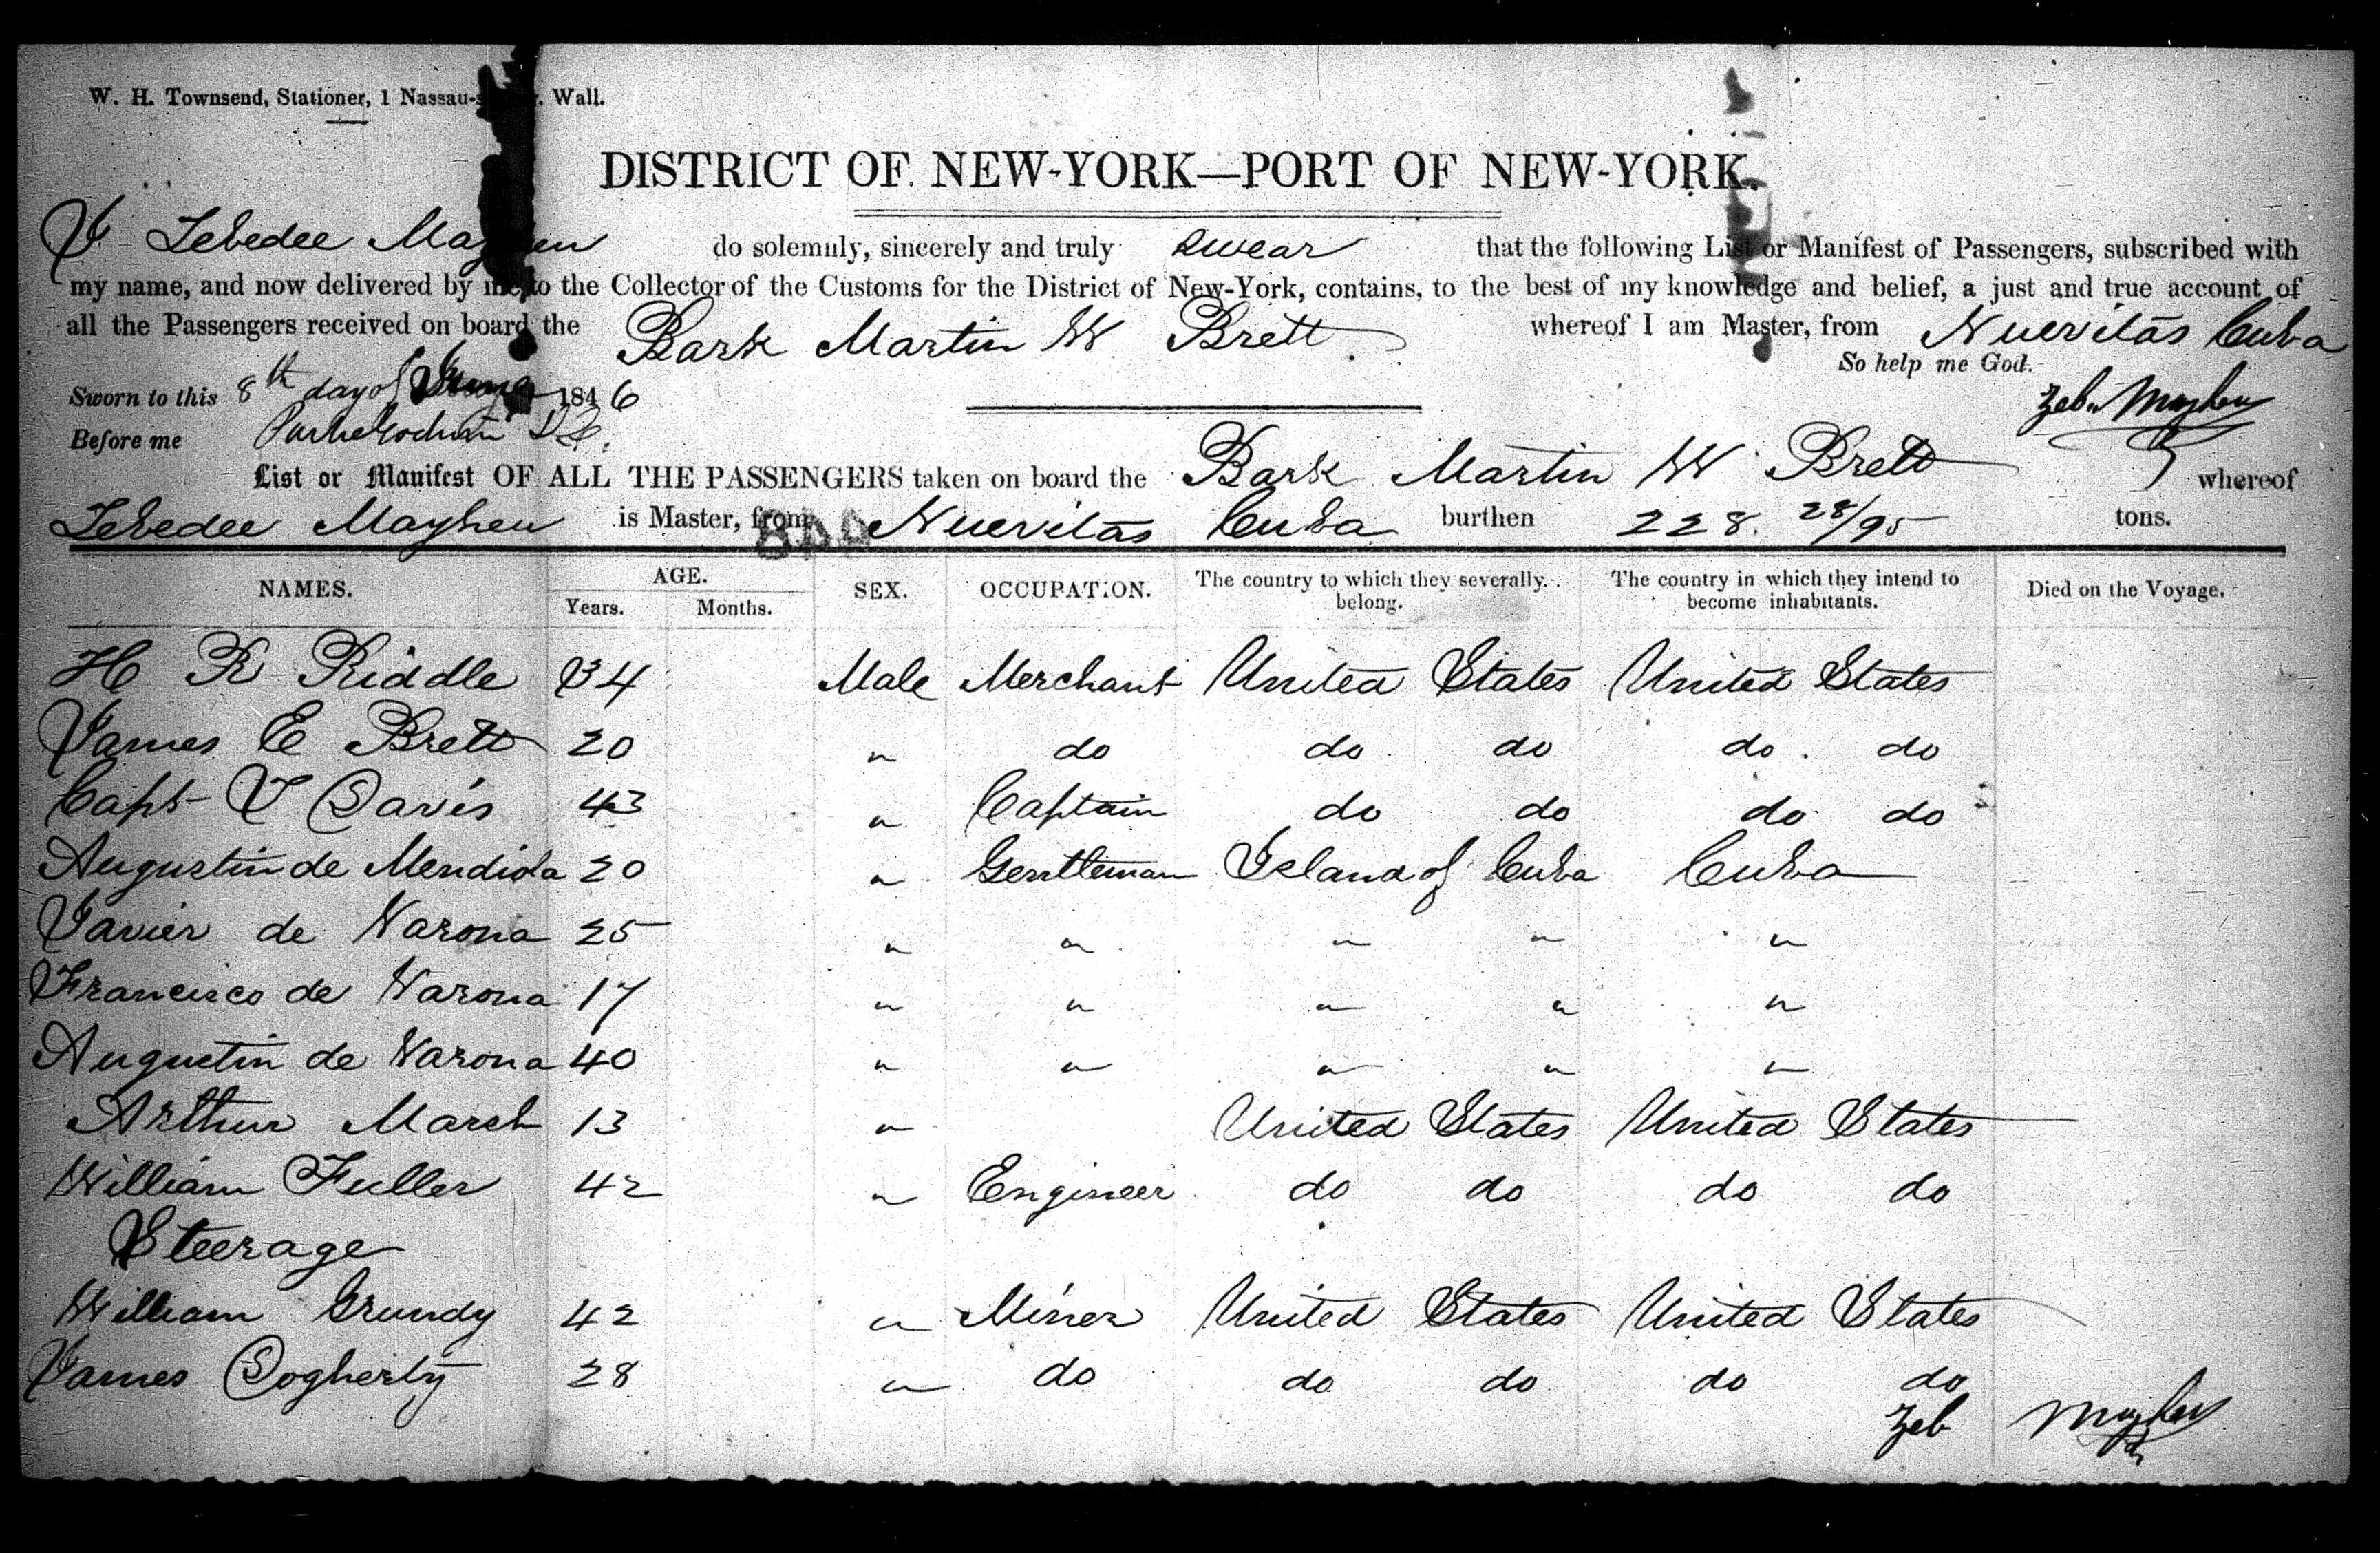 W. H. Townsend, Stationer, 1 Nassau- Wall.
DISTRICT OF NEW-YORK—PORT OF NEW-YORK.
I Zebedee Mayhew do solemnly, sincerely and truly swear that the following List or Manifest of Passengers, subscribed with
my name, and now delivered by me to the Collector of the Customs for the District of New-York, contains, to the best of my knowledge and belief, a just and true account of
all the Passengers received on board the Bark Martin W Brett. whereof I am Master, from Nuevitas Cuba
So help me God.
Sworn to this 8th day of June 1846
Zeb Mayhew
Before me
List or Manifest OF ALL THE PASSENGERS taken on board the Bark Martin W Brett whereof
Zebedee Mayhew is Master, from Nuevitas Cuba burthen 228. 28/95 tons.
NAMES. AGE. SEX. OCCUPATION. The country to which they severally belong. The country in which they intend to become inhabitants. Died on the Voyage.
Years. Months.
H R Riddle 34 Male Merchant United States United States
James E Brett 20 " do do do do do
Capt J Davis 43 " Captain do do do do
Augustin de Mendiola 20 " Gentleman Island of Cuba Cuba
Javier de Varona 25 " " " " "
Francisco de Varona 17 " " " " "
Augustin de Varona 40 " " " " "
Arthur March 13 " United States United States
William Fuller 42 " Engineer do do do do
Steerage
William Grundy 42 " Miner United States United States
James Dogherty 28 " do do do do do
Zeb Mayhew